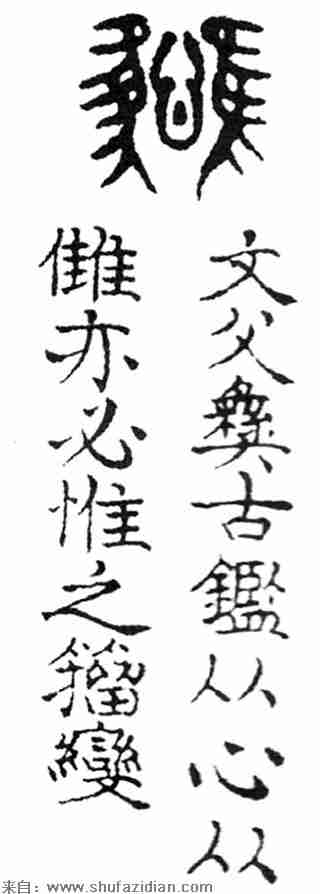 文父彝古鑑从心从
雔亦必惟之籀變
来自：www.shufazidian.com